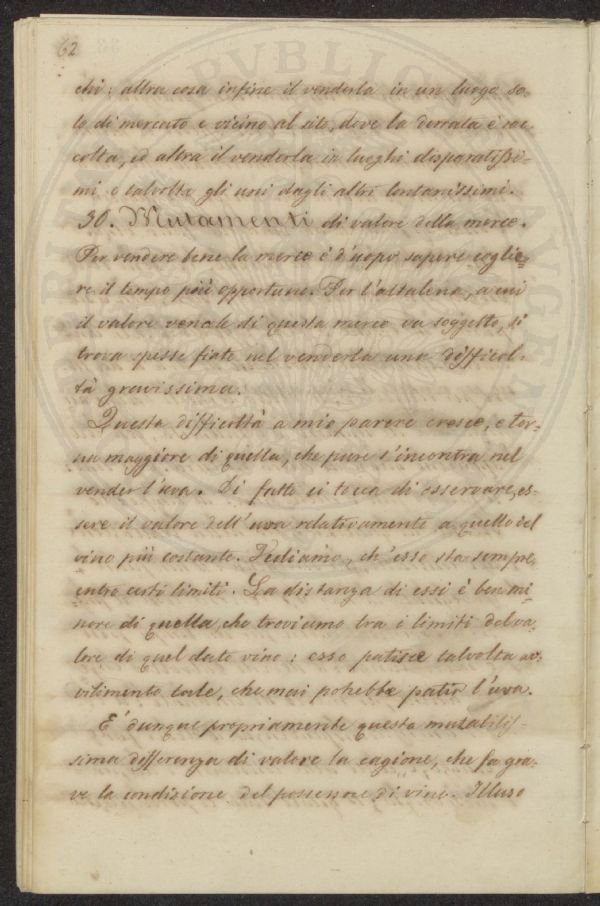 62
chi: altra cosa infine il venderla in un luogo so-
lo di mercato e vicino al sito, dove la derrata è rac-
colta, ed altra il venderla in luoghi disparatissi-
mi e talvolta gli uni dagli altri lontanissimi.
30. Mutamenti di valore della merce.
Per vendere bene la merce è d'uopo sapere coglie-
re il tempo più opportuno. Per l'altalena, a cui
il valore venale di questa merce va soggetto, si
trova spesse fiate nel venderla una difficol-
tà gravissima.
Questa difficoltà a mio parere cresce, e tor-
na maggiore di quella, che pure s'incontra nel
vender l'uva. Di fatto ci tocca di osservare, es-
sere il valore dell'uva relativamente a quello del
vino più costante. Vediamo, ch'esso sta sempre
entro certi limiti. La distanza di essi è ben mi-
nore di quella che troviamo tra i limiti del va-
lore di quel dato vino: esso patisce talvolta av-
vilimento tale, che mai potrebbe patir l'uva.
E' dunque propriamente questa mutabilis-
sima differenza di valore la cagione, che fa gra-
ve la condizione del possessore di vino. Illuso
PVBLICA